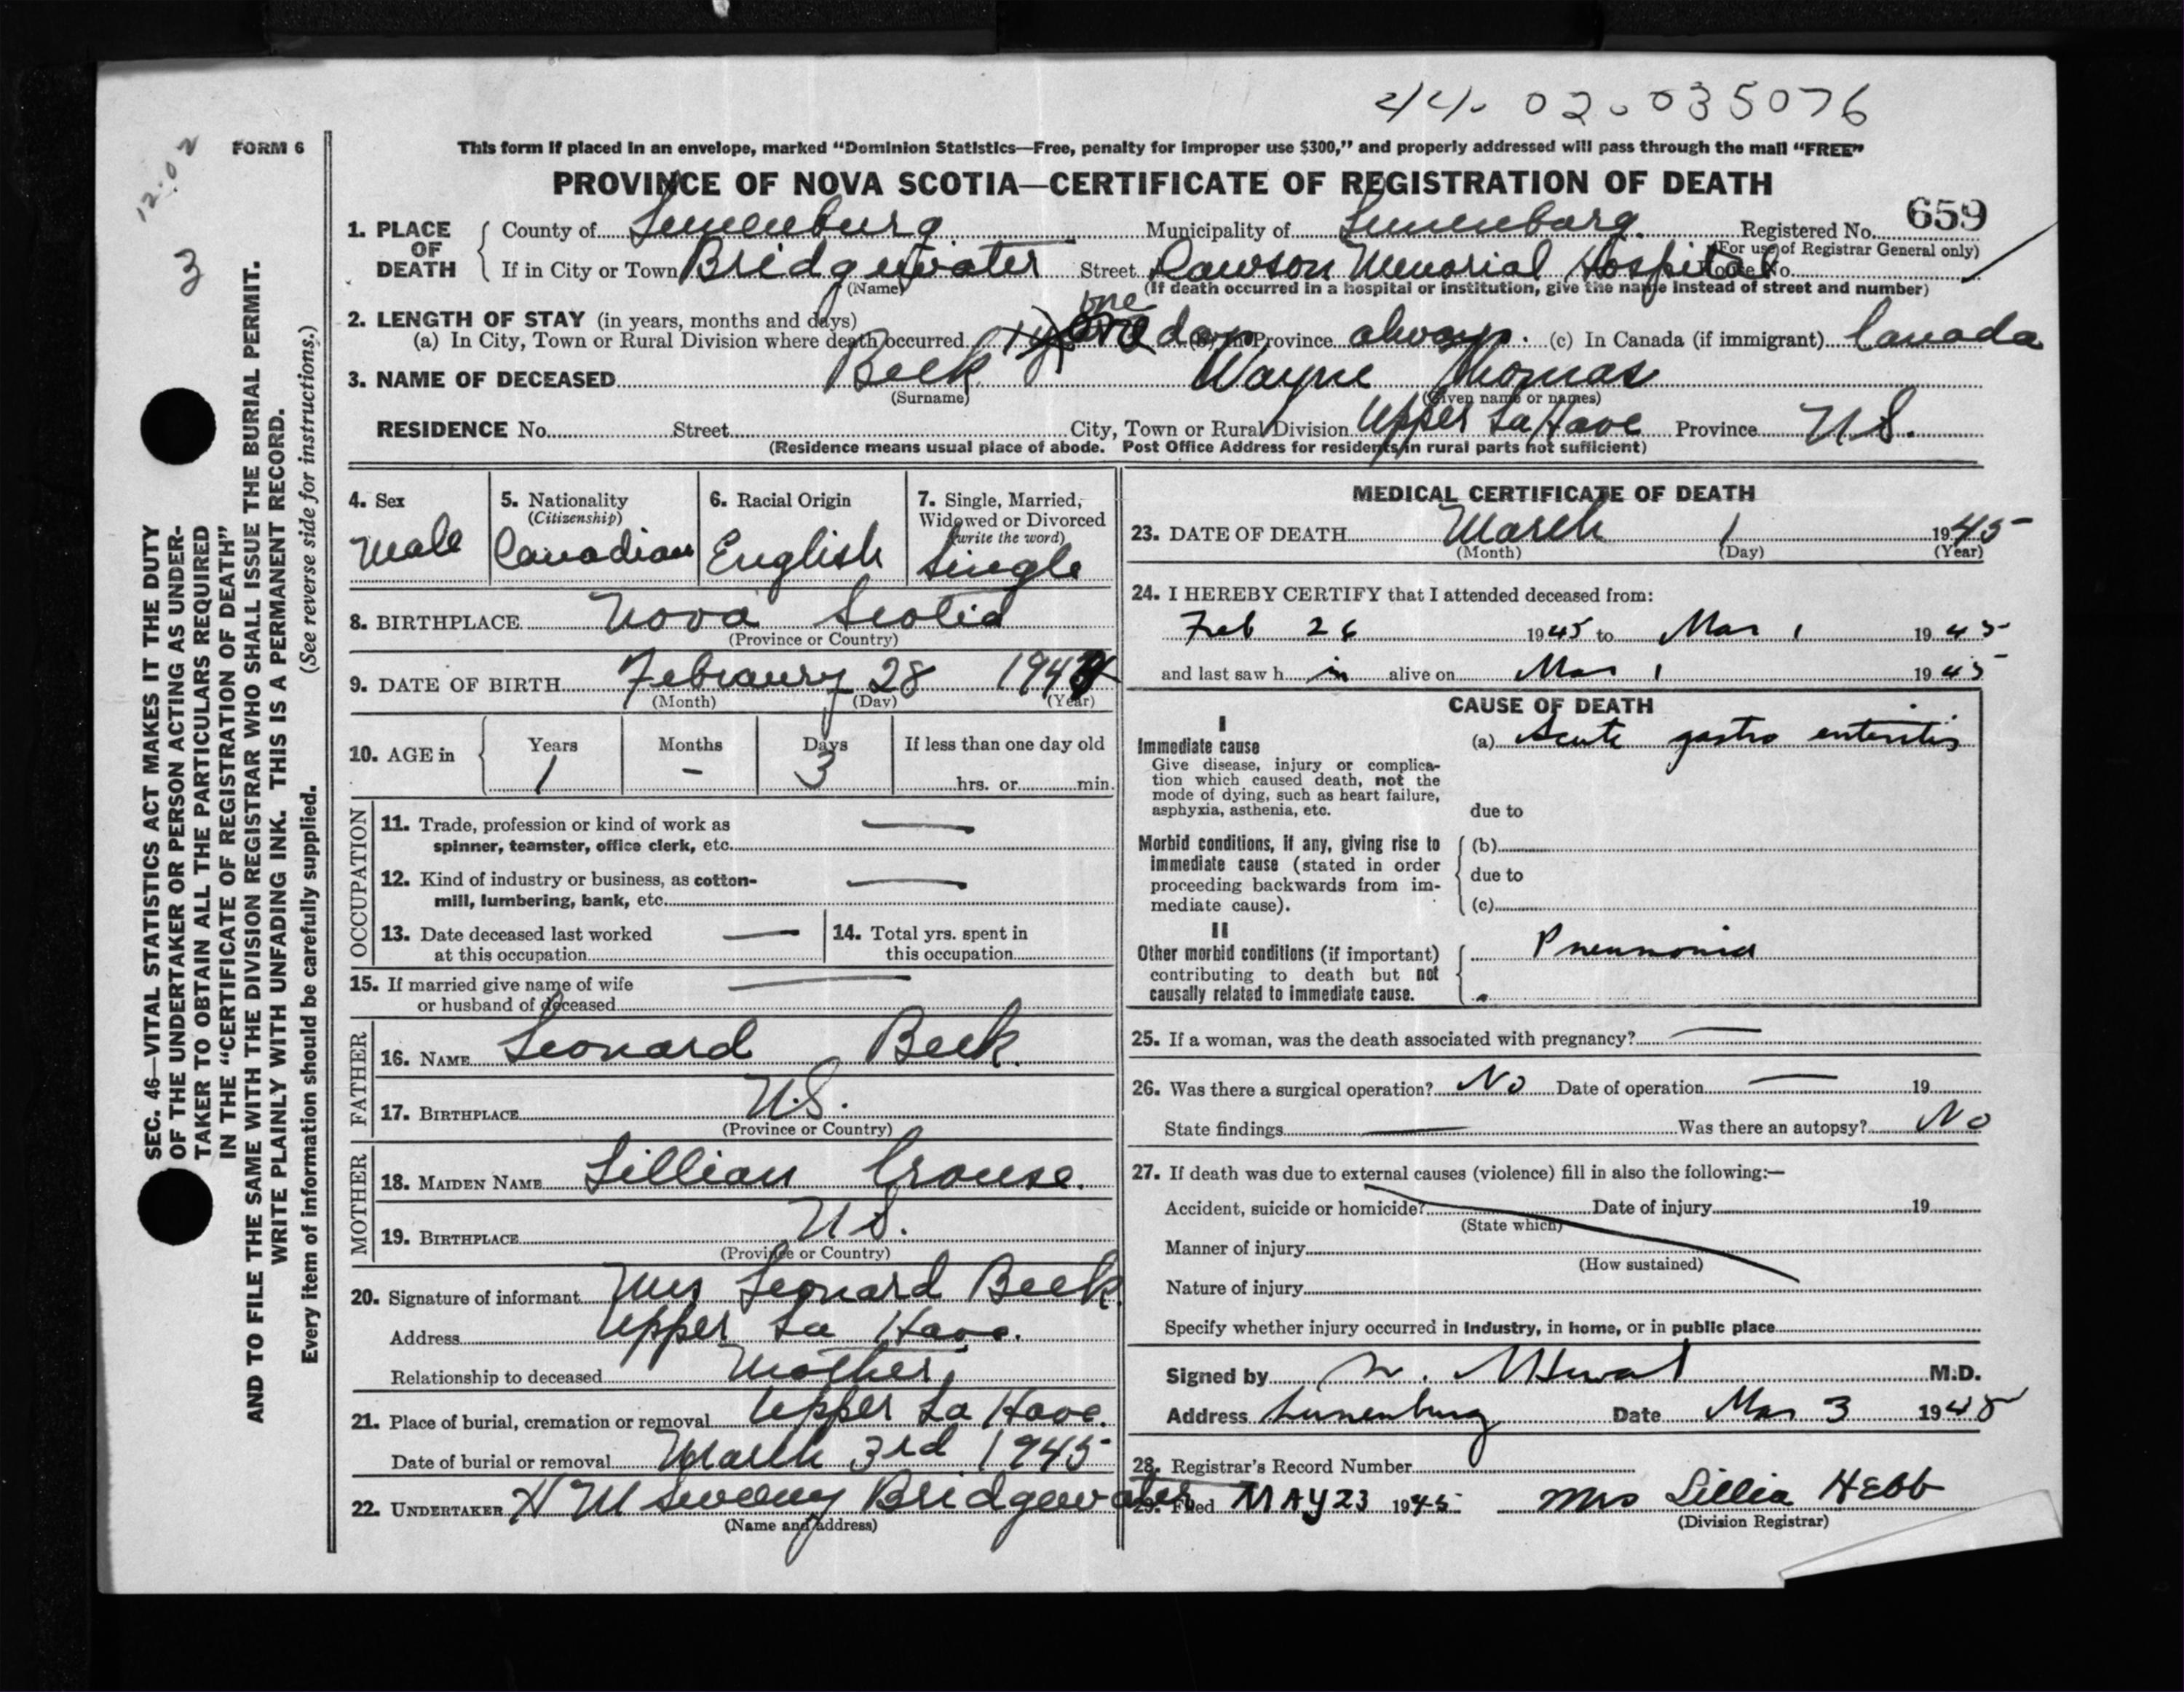 44. 02-035076
FORM 6
12.02
3
This form if placed in an envelope, marked "Dominion Statistics—Free, penalty for improper use $300," and properly addressed will pass through the mail "FREE"
PROVINCE OF NOVA SCOTIA—CERTIFICATE OF REGISTRATION OF DEATH
659
1. PLACE OF DEATH County of Lunenburg Municipality of Lunenburg Registered No.
(For use of Registrar General only)
If in City or Town Bridgewater Street Dawson Memorial Hospital House No.
(Name) (If death occurred in a hospital or institution, give the name instead of street and number)
2. LENGTH OF STAY (in years, months and days) one
(a) In City, Town or Rural Division where death occurred one day (b) In Province always. (c) In Canada (if immigrant) Canada
3. NAME OF DECEASED Beck Wayne Thomas
(Surname) (Given name or names)
RESIDENCE No. Street City, Town or Rural Division Upper La Have Province N.S.
(Residence means usual place of abode. Post Office Address for residents in rural parts not sufficient)
4. Sex 5. Nationality 6. Racial Origin 7. Single, Married,
(Citizenship) Widowed or Divorced
(write the word)
Male Canadian English Single
8. BIRTHPLACE Nova Scotia
(Province or Country)
9. DATE OF BIRTH Febraury 28 1944
(Month) (Day) (Year)
10. AGE in Years Months Days If less than one day old
1 - 3 hrs. or min.
OCCUPATION
11. Trade, profession or kind of work as —
spinner, teamster, office clerk, etc.
12. Kind of industry or business, as cotton- —
mill, lumbering, bank, etc.
13. Date deceased last worked — 14. Total yrs. spent in
at this occupation this occupation
15. If married give name of wife —
or husband of deceased
FATHER
16. NAME Leonard Beck.
17. BIRTHPLACE N.S.
(Province or Country)
MOTHER
18. MAIDEN NAME Lillian Crouse.
19. BIRTHPLACE N.S.
(Province or Country)
20. Signature of informant Mrs Leonard Beck.
Address Upper La Have.
Relationship to deceased Mother.
21. Place of burial, cremation or removal Upper La Have.
Date of burial or removal March 3rd 1945
22. UNDERTAKER H M Sweeny Bridgewater
(Name and address)
MEDICAL CERTIFICATE OF DEATH
23. DATE OF DEATH March 1 1945
(Month) (Day) (Year)
24. I HEREBY CERTIFY that I attended deceased from:
Feb 26 1945 to Mar 1 1945
and last saw h im alive on Mar 1 1945
CAUSE OF DEATH
I
Immediate cause (a) Acute gastro enteritis
Give disease, injury or complica-
tion which caused death, not the
mode of dying, such as heart failure,
asphyxia, asthenia, etc. due to
Morbid conditions, if any, giving rise to (b)
immediate cause (stated in order
proceeding backwards from im- due to
mediate cause). (c)
II
Other morbid conditions (if important) Pneumonia
contributing to death but not
causally related to immediate cause.
25. If a woman, was the death associated with pregnancy? —
26. Was there a surgical operation? No Date of operation — 19
State findings — Was there an autopsy? No
27. If death was due to external causes (violence) fill in also the following:—
Accident, suicide or homicide? Date of injury 19
(State which)
Manner of injury
(How sustained)
Nature of injury
Specify whether injury occurred in industry, in home, or in public place
Signed by M.D.
Address Lunenburg Date Mar 3 1945
28. Registrar's Record Number
29. Filed MAY 23 1945 Mrs Lillia Hebb
(Division Registrar)
SEC. 46—VITAL STATISTICS ACT MAKES IT THE DUTY
OF THE UNDERTAKER OR PERSON ACTING AS UNDER-
TAKER TO OBTAIN ALL THE PARTICULARS REQUIRED
IN THE "CERTIFICATE OF REGISTRATION OF DEATH"
AND TO FILE THE SAME WITH THE DIVISION REGISTRAR WHO SHALL ISSUE THE BURIAL PERMIT.
WRITE PLAINLY WITH UNFADING INK. THIS IS A PERMANENT RECORD.
Every item of information should be carefully supplied. (See reverse side for instructions.)